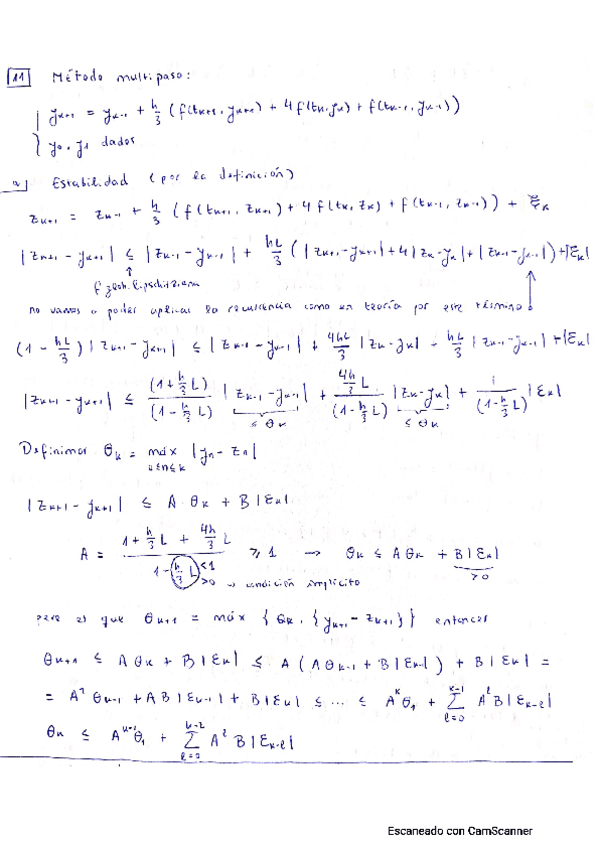 11 Método multipaso:
y_{k+1} = y_{k-1} + h/3 (f(t_{k+1}, y_{k+1}) + 4f(t_k, y_k) + f(t_{k-1}, y_{k-1}))
y_0, y_1 dados
a) Estabilidad (por la definición)
z_{k+1} = z_{k-1} + h/3 (f(t_{k+1}, z_{k+1}) + 4f(t_k, z_k) + f(t_{k-1}, z_{k-1})) + ξ_k
|z_{k+1} - y_{k+1}| ≤ |z_{k-1} - y_{k-1}| + hL/3 (|z_{k+1} - y_{k+1}| + 4|z_k - y_k| + |z_{k-1} - y_{k-1}|) + |ε_k|
↑
f lipschitziana
no vamos a poder aplicar la recurrencia como en teoría por este término
(1 - hL/3) |z_{k+1} - y_{k+1}| ≤ |z_{k-1} - y_{k-1}| + 4hL/3 |z_k - y_k| - hL/3 |z_{k-1} - y_{k-1}| + |ε_k|
|z_{k+1} - y_{k+1}| ≤ (1 + h/3 L)/(1 - h/3 L) |z_{k-1} - y_{k-1}| + 4h/3 L/(1 - h/3 L) |z_k - y_k| + 1/(1 - h/3 L) |ε_k|
≤ θ_k ≤ θ_k
Definimos θ_k = máx_{0≤n≤k} |y_n - z_n|
|z_{k+1} - y_{k+1}| ≤ A θ_k + B |ε_k|
A = (1 + h/3 L + 4h/3 L)/(1 - h/3 L) ≥ 1 → θ_k ≤ A θ_k + B |ε_k|
<1
>0 → condición implícito
>0
para el que θ_{k+1} = máx {θ_k, {y_{k+1} - z_{k+1}}} entonces
θ_{k+1} ≤ A θ_k + B |ε_k| ≤ A (A θ_{k-1} + B |ε_{k-1}|) + B |ε_k| =
= A² θ_{k-1} + A B |ε_{k-1}| + B |ε_k| ≤ ... ≤ A^k θ_1 + Σ_{l=0}^{k-1} A^l B |ε_{k-l}|
θ_k ≤ A^{k-1} θ_1 + Σ_{l=0}^{k-2} A^l B |ε_{k-l}|
Escaneado con CamScanner